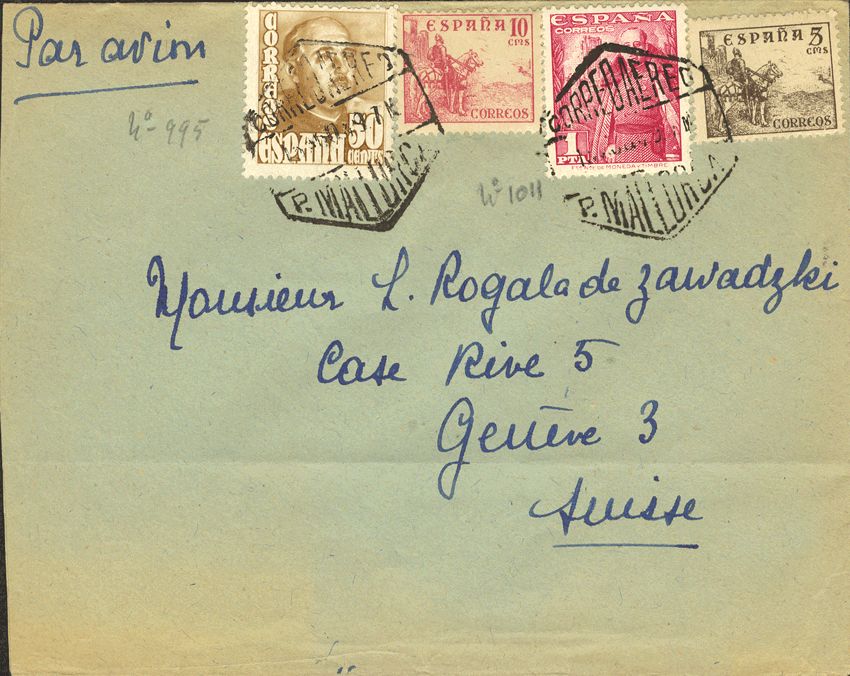 Par avion
CORREOS
ESPAÑA 50 CENTS
ESPAÑA 10 CMS
CORREOS
ESPAÑA
CORREOS
1 PTA
ESPAÑA 5 CMS
CORREOS
CORREO AEREO
P. MALLORCA
CORREO AEREO
P. MALLORCA
Nº 995
Nº 1011
Monsieur L. Rogala de Zawadzki
Case Rive 5
Genève 3
Suisse